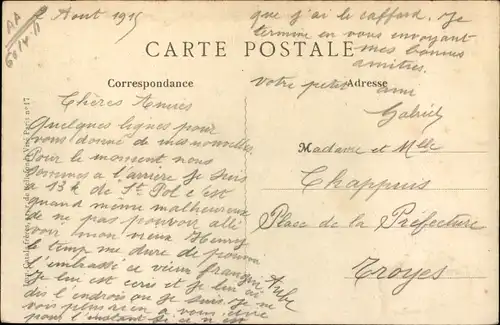 2 Aout 1915
CARTE POSTALE
Correspondance
Chères Amies
Quelques lignes pour
vous donné de mes nouvelles
Pour le moment nous
sommes a l'arrière je suis
a 13 k de St Pol c'est
quand même malheureux
de ne pas pouvoir allé
voir mon vieux Henry
le temp me dure de pouvoir
l'embrassé ce vieux frangin
Je lui est ecris et je lui ai
dis l'endrois ou je suis. Je ne
vois plus rien a vous
pour l'instant si ce n'est
que j'ai le caffard. Je
termine en vous envoyant
mes bonnes
amitiés.
votre petit ami
Gabriel
Adresse
Madame et Mlle
Chappuis
Place de la Préfecture
Troyes
Aube